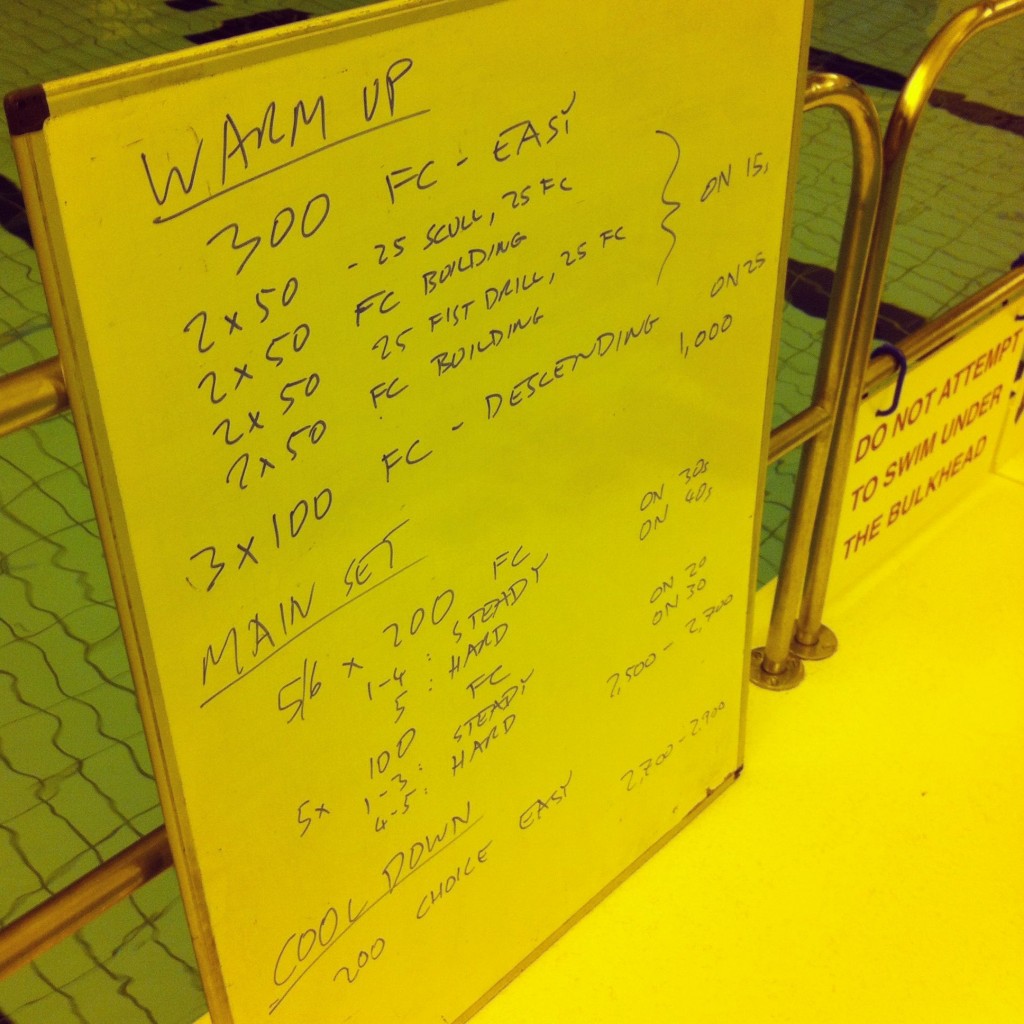 WARM UP
300 FC - EASY
2 x 50 - 25 SCULL, 25 FC
2 x 50 FC BUILDING
2 x 50 25 FIST DRILL, 25 FC
2 x 50 FC BUILDING
} ON 15s
3 x 100 FC - DESCENDING ON 25
1,000
MAIN SET
5/6 x 200 FC
1-4 : STEADY ON 30s
5 : HARD ON 40s
5x 100 FC
1-3 : STEADY ON 20
4-5 : HARD ON 30
2,500 - 2,700
COOL DOWN
200 CHOICE EASY 2,700 - 2,900
DO NOT ATTEMPT
TO SWIM UNDER
THE BULKHEAD